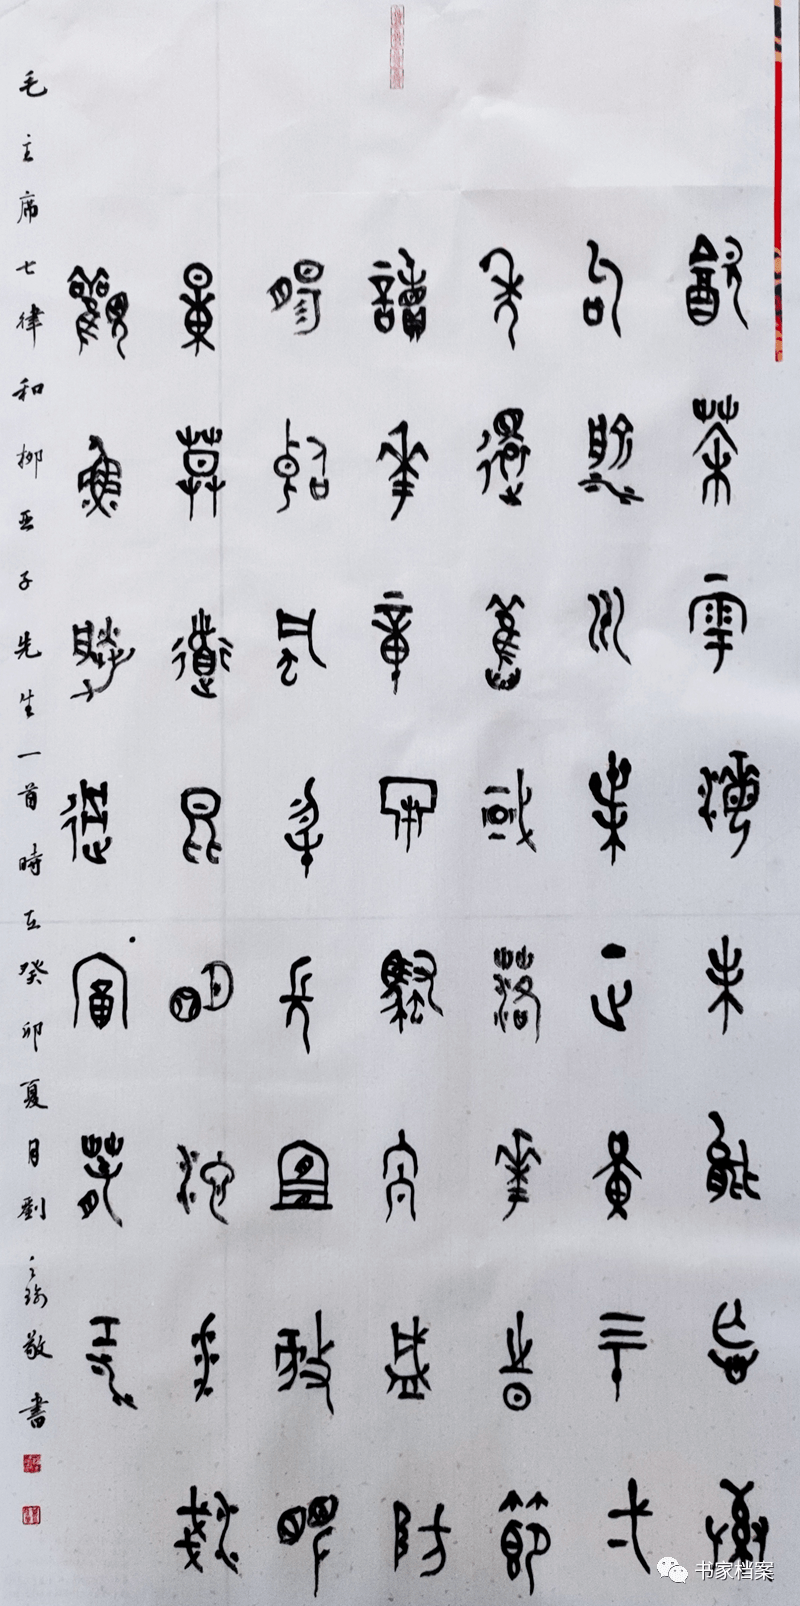 飲茶粵海未能忘索
句渝州葉正黃三十一
年還舊國落華時節
讀華章牢騷太盛防
腸斷風物長宜放眼
量莫道昆明池水淺
觀魚勝過富春江
毛主席七律和柳亞子先生一首時在癸卯夏月劉之瑜敬書
书家档案